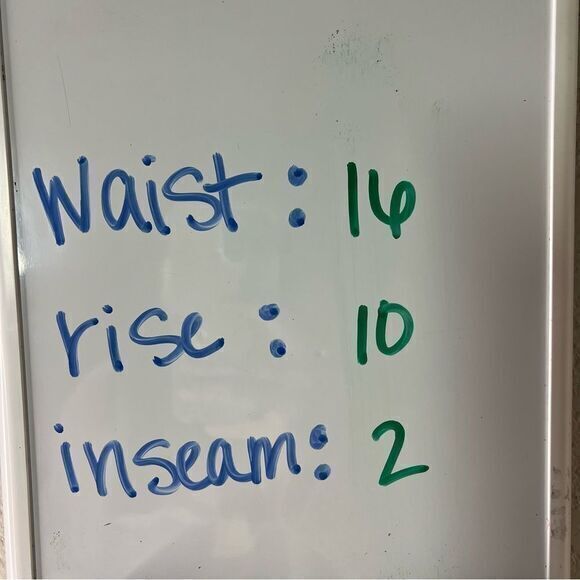 Waist: 16
rise: 10
inseam: 2